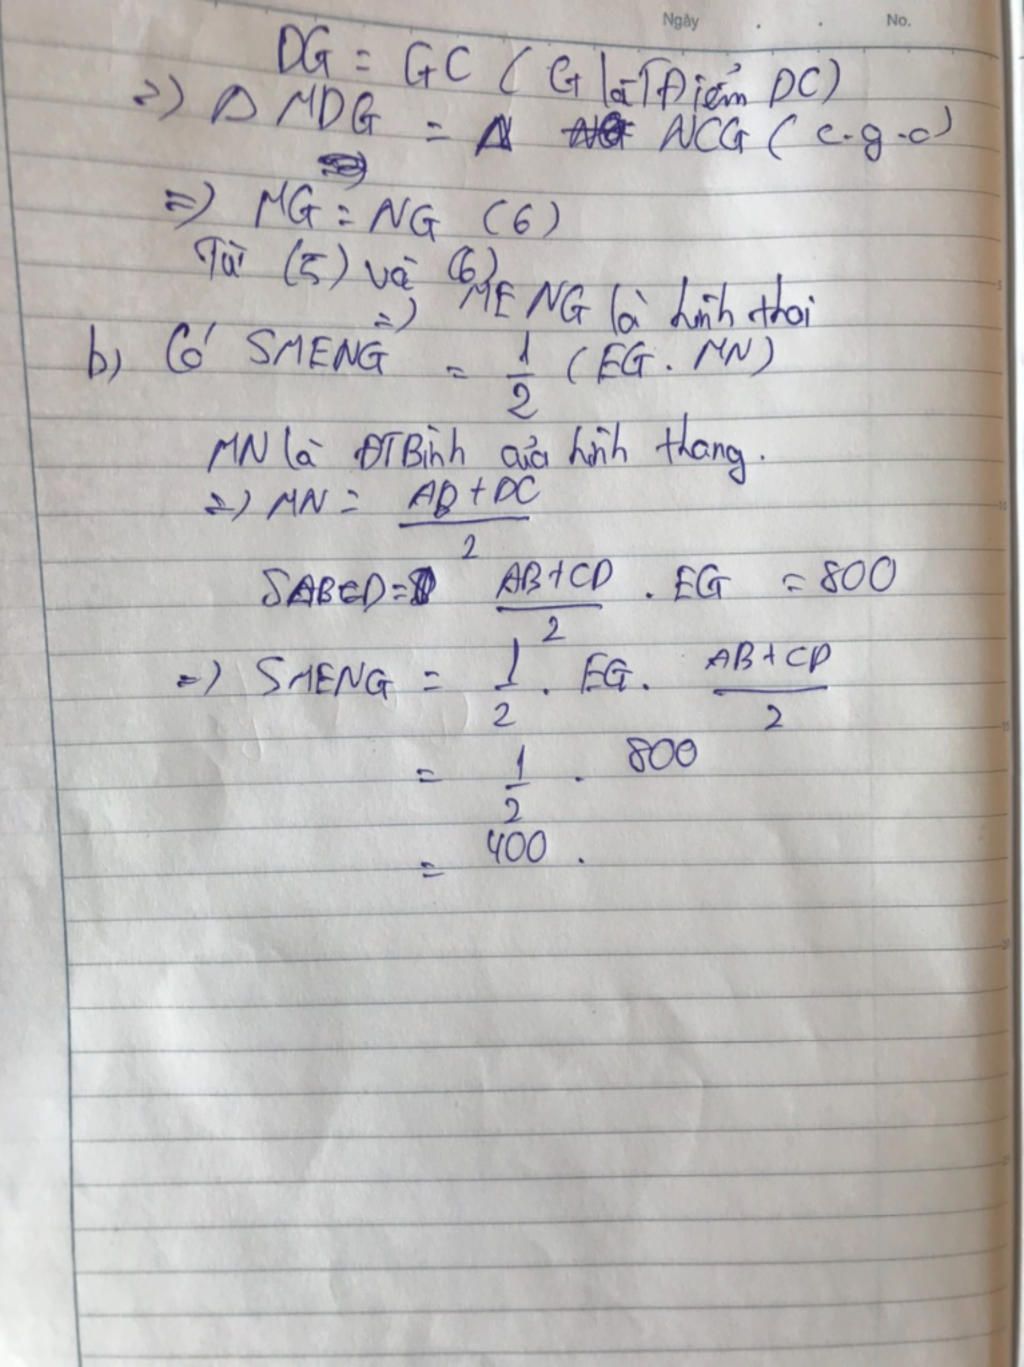 Ngày . . No.
DG = GC ( G là TĐiểm DC)
=) Δ MDG = Δ NCG ( c-g-c)
=) MG = NG (6)
Từ (5) và (6)
=) MENG là hình thoi
b) Có SMENG = 1/2 (EG . MN)
MN là ĐTBình của hình thang.
=) MN = AB + DC / 2
SABCD = AB + CD / 2 . EG = 800
=) SMENG = 1/2 . EG . AB + CD / 2
= 1/2 . 800
= 400 .